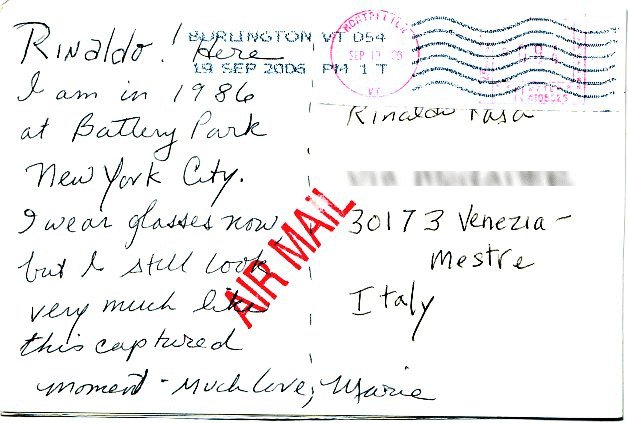 Rinaldo! Here
I am in 1986
at Battery Park
New York City.
I wear glasses now
but I still look
very much like
this captured
moment - Much love, Marie
BURLINGTON VT 054
19 SEP 2006 PM 1 T
MONTPELIER
SEP 19 06
VT
AIR MAIL
Rinaldo
30173 Venezia -
Mestre
Italy